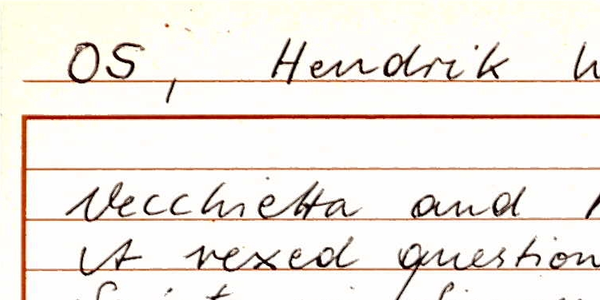 OS, Hendrik W
Vecchietta and
A vexed question